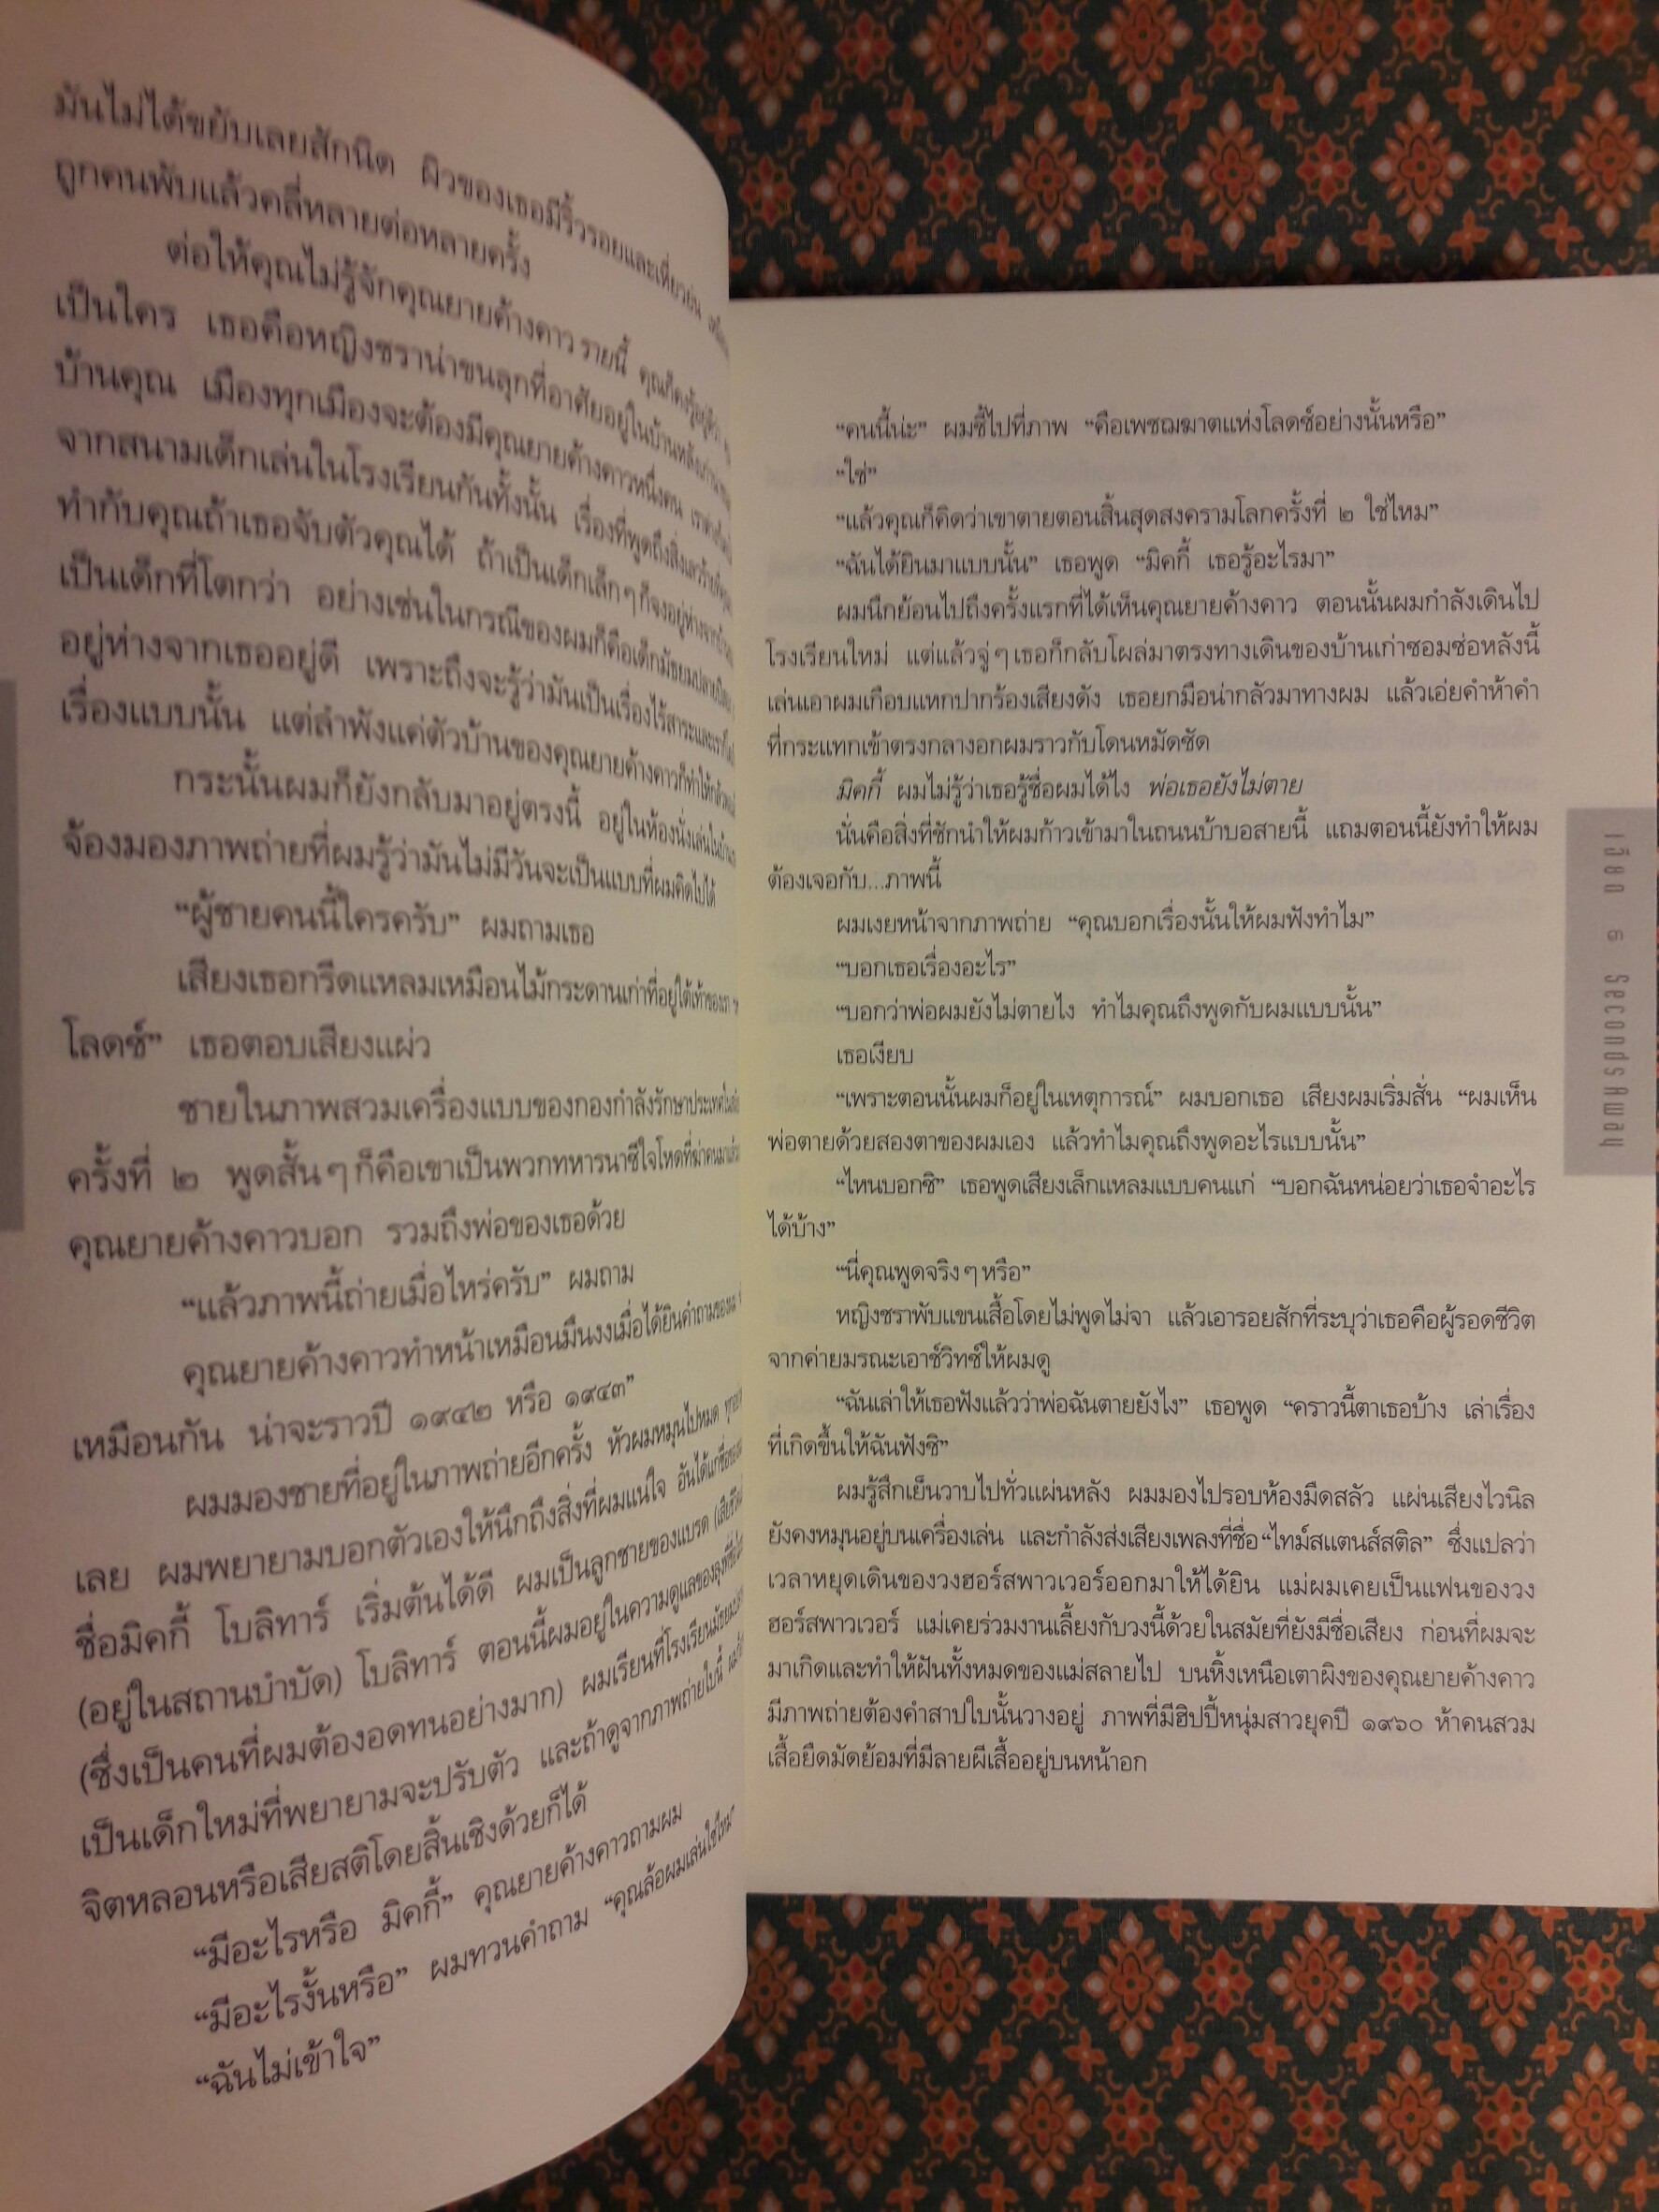 มันไม่ได้ขยับเลยสักนิด ผิวของเธอมีริ้วรอยและเหี่ยวย่น
ถูกคนพับแล้วคลี่หลายต่อหลายครั้ง
ต่อให้คุณไม่รู้จักคุณยายค้างคาว รายนี้
เป็นใคร เธอคือหญิงชราน่าขนลุกที่อาศัยอยู่ในบ้านหลังเก่า
บ้านคุณ เมืองทุกเมืองจะต้องมีคุณยายค้างคาวหนึ่งคน
จากสนามเด็กเล่นในโรงเรียนกันทั้งนั้น เรื่องที่พูดถึงสิ่งเลวร้ายที่
ทำกับคุณถ้าเธอจับตัวคุณได้ ถ้าเป็นเด็กเล็กๆ ก็จงอยู่ห่างจาก
เป็นเด็กที่โตกว่า อย่างเช่นในกรณีของผมก็คือเด็กมัธยมปลาย
อยู่ห่างจากเธออยู่ดี เพราะถึงจะรู้ว่ามันเป็นเรื่องไร้สาระและ
เรื่องแบบนั้น แต่ลำพังแค่ตัวบ้านของคุณยายค้างคาวก็ทำให้
กระนั้นผมก็ยังกลับมาอยู่ตรงนี้ อยู่ในห้องนั่งเล่น
จ้องมองภาพถ่ายที่ผมรู้ว่ามันไม่มีวันจะเป็นแบบที่ผมคิดไปได้
“ผู้ชายคนนี้ใครครับ” ผมถามเธอ
เสียงเธอกรีดแหลมเหมือนไม้กระดานเก่าที่อยู่ใต้เท้าของเรา
โลดซ์” เธอตอบเสียงแผ่ว
ชายในภาพสวมเครื่องแบบของกองกำลังรักษาประเทศ
ครั้งที่ ๒ พูดสั้นๆ ก็คือเขาเป็นพวกทหารนาซีใจโหดที่ฆ่าคนมา
คุณยายค้างคาวบอก รวมถึงพ่อของเธอด้วย
“แล้วภาพนี้ถ่ายเมื่อไหร่ครับ” ผมถาม
คุณยายค้างคาวทำหน้าเหมือนมึนงงเมื่อได้ยินคำถามของผม
เหมือนกัน น่าจะราวปี ๑๙๔๒ หรือ ๑๙๔๓”
ผมมองชายที่อยู่ในภาพถ่ายอีกครั้ง หัวผมหมุนไปหมด
เลย ผมพยายามบอกตัวเองให้นึกถึงสิ่งที่ผมแน่ใจ อันได้แก่
ชื่อมิคกี้ โบลิทาร์ เริ่มต้นได้ดี ผมเป็นลูกชายของแบรด
(อยู่ในสถานบำบัด) โบลิทาร์ ตอนนี้ผมอยู่ในความดูแลของลุง
(ซึ่งเป็นคนที่ผมต้องอดทนอย่างมาก) ผมเรียนที่โรงเรียน
เป็นเด็กใหม่ที่พยายามจะปรับตัว และถ้าดูจากภาพถ่ายใบนี้
จิตหลอนหรือเสียสติโดยสิ้นเชิงด้วยก็ได้
“มีอะไรหรือ มิคกี้” คุณยายค้างคาวถามผม
“มีอะไรงั้นหรือ” ผมทวนคำถาม “คุณล้อผมเล่นใช่ไหม”
“ฉันไม่เข้าใจ”
“คนนี้น่ะ” ผมชี้ไปที่ภาพ “คือเพชฌฆาตแห่งโลดซ์อย่างนั้นหรือ”
“ใช่”
“แล้วคุณก็คิดว่าเขาตายตอนสิ้นสุดสงครามโลกครั้งที่ ๒ ใช่ไหม”
“ฉันได้ยินมาแบบนั้น” เธอพูด “มิคกี้ เธอรู้อะไรมา”
ผมนึกย้อนไปถึงครั้งแรกที่ได้เห็นคุณยายค้างคาว ตอนนั้นผมกำลังเดินไป
โรงเรียนใหม่ แต่แล้วจู่ๆ เธอก็กลับโผล่มาตรงทางเดินของบ้านเก่าซอมซ่อหลังนี้
เล่นเอาผมเกือบแหกปากร้องเสียงดัง เธอยกมือน่ากลัวมาทางผม แล้วเอ่ยคำห้าคำ
ที่กระแทกเข้าตรงกลางอกผมราวกับโดนหมัดซัด
มิคกี้ ผมไม่รู้ว่าเธอรู้ชื่อผมได้ไง พ่อเธอยังไม่ตาย
นั่นคือสิ่งที่ชักนำให้ผมก้าวเข้ามาในถนนบ้าบอสายนี้ แถมตอนนี้ยังทำให้ผม
ต้องเจอกับ...ภาพนี้
ผมเงยหน้าจากภาพถ่าย “คุณบอกเรื่องนั้นให้ผมฟังทำไม”
“บอกเธอเรื่องอะไร”
“บอกว่าพ่อผมยังไม่ตายไง ทำไมคุณถึงพูดกับผมแบบนั้น”
เธอเงียบ
“เพราะตอนนั้นผมก็อยู่ในเหตุการณ์” ผมบอกเธอ เสียงผมเริ่มสั่น “ผมเห็น
พ่อตายด้วยสองตาของผมเอง แล้วทำไมคุณถึงพูดอะไรแบบนั้น”
“ไหนบอกซิ” เธอพูดเสียงเล็กแหลมแบบคนแก่ “บอกฉันหน่อยว่าเธอจำอะไร
ได้บ้าง”
“นี่คุณพูดจริงๆ หรือ”
หญิงชราพับแขนเสื้อโดยไม่พูดไม่จา แล้วเอารอยสักที่ระบุว่าเธอคือผู้รอดชีวิต
จากค่ายมรณะเอาช์วิทซ์ให้ผมดู
“ฉันเล่าให้เธอฟังแล้วว่าพ่อฉันตายยังไง” เธอพูด “คราวนี้ตาเธอบ้าง เล่าเรื่อง
ที่เกิดขึ้นให้ฉันฟังซิ”
ผมรู้สึกเย็นวาบไปทั่วแผ่นหลัง ผมมองไปรอบห้องมืดสลัว แผ่นเสียงไวนิล
ยังคงหมุนอยู่บนเครื่องเล่น และกำลังส่งเสียงเพลงที่ชื่อ “ไทม์สแตนส์สติล” ซึ่งแปลว่า
เวลาหยุดเดินของวงฮอร์สพาวเวอร์ออกมาให้ได้ยิน แม่ผมเคยเป็นแฟนของวง
ฮอร์สพาวเวอร์ แม่เคยร่วมงานเลี้ยงกับวงนี้ด้วยในสมัยที่ยังมีชื่อเสียง ก่อนที่ผมจะ
มาเกิดและทำให้ฝันทั้งหมดของแม่สลายไป บนหิ้งเหนือเตาผิงของคุณยายค้างคาว
มีภาพถ่ายต้องคำสาปใบนั้นวางอยู่ ภาพที่มีฮิปปี้หนุ่มสาวยุคปี ๑๙๖๐ ห้าคนสวม
เสื้อยืดมัดย้อมที่มีลายผีเสื้ออยู่บนหน้าอก
เฉียด ๓ Seconds Away